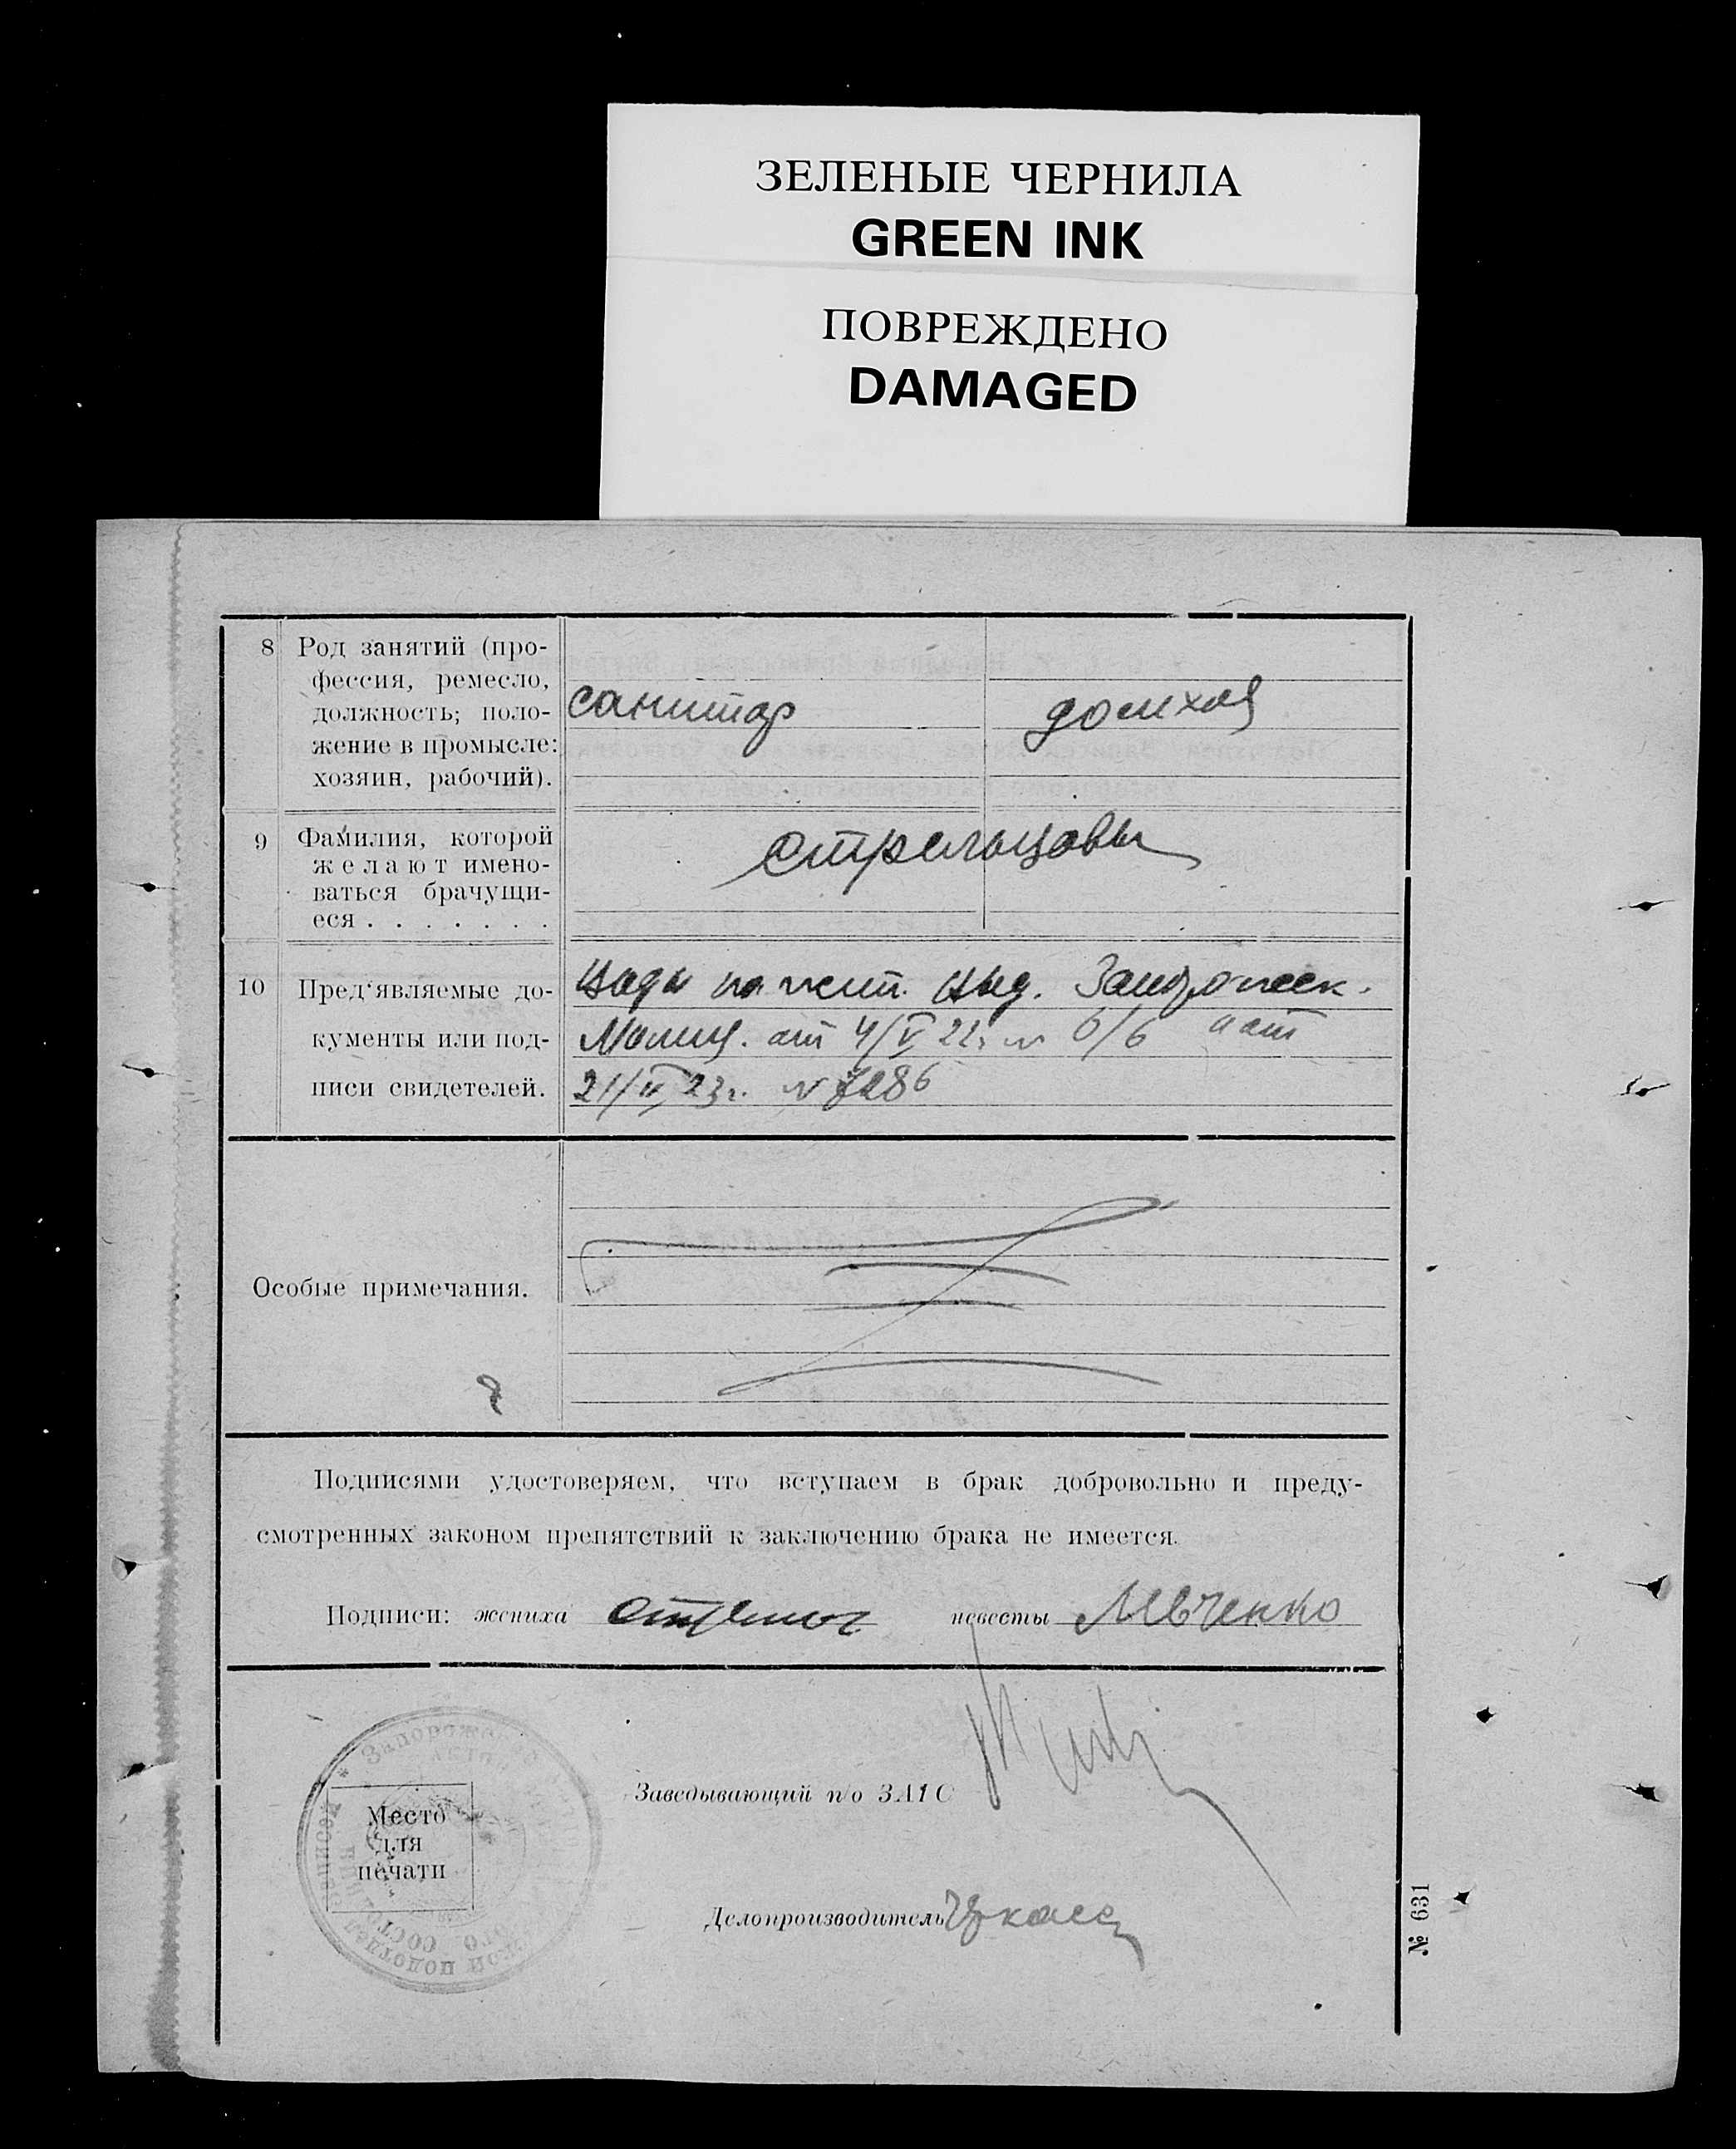 ЗЕЛЕНЫЕ ЧЕРНИЛА
GREEN INK
ПОВРЕЖДЕНО
DAMAGED
8 Род занятий (про-
фессия, ремесло,
должность; поло-
жение в промысле:
хозяин, рабочий).
санитар домхоз
9 Фамилия, которой
желают имено-
ваться брачущи-
еся . . . . . . .
Стрельцовы
10 Пред'являемые до-
кументы или под-
писи свидетелей.
Виды на жит. выд. Запорожск.
Милиц. от 4/V 22г. № б/б и от
21/II 23г. № 7286
Особые примечания.
Подписями удостоверяем, что вступаем в брак добровольно и преду-
смотренных законом препятствий к заключению брака не имеется.
Подписи: жениха невесты Левченко
Место
для
печати
Заведывающий п/о ЗАГС
Делопроизводитель
№ 631